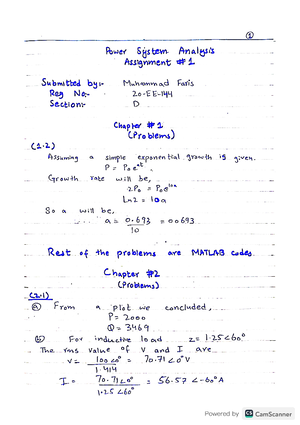 ①
Power System Analysis
Assignment # 1
Submitted by:- Muhammad Faris
Reg No:- 20-EE-144
Section:- D
Chapter # 1
(Problems)
(1.2)
Assuming a simple exponential growth is given.
P = P₀e^at
Growth rate will be,
2P₀ = P₀e^10a
Ln2 = 10a
So a will be,
a = 0.693 / 10 = 0.0693
Rest of the problems are MATLAB codes.
Chapter #2
(Problems)
(2.1)
ⓐ From a plot we concluded,
P = 2000
Q = 3464
ⓑ For inductive load z = 1.25∠60°
The rms value of V and I are
V = 100∠0° / 1.414 = 70.71∠0° V
I = 70.71∠0° / 1.25∠60° = 56.57∠-60° A
Powered by CS CamScanner